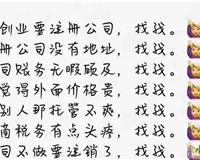 创业要注册公司，找我。
册公司没有地址，找我。
司账务无暇顾及，找我。
觉得外面价格贵，找我。
别人那托管不爽，找我。
商税务有点头疼，找我。
司不做要注销了，找我。